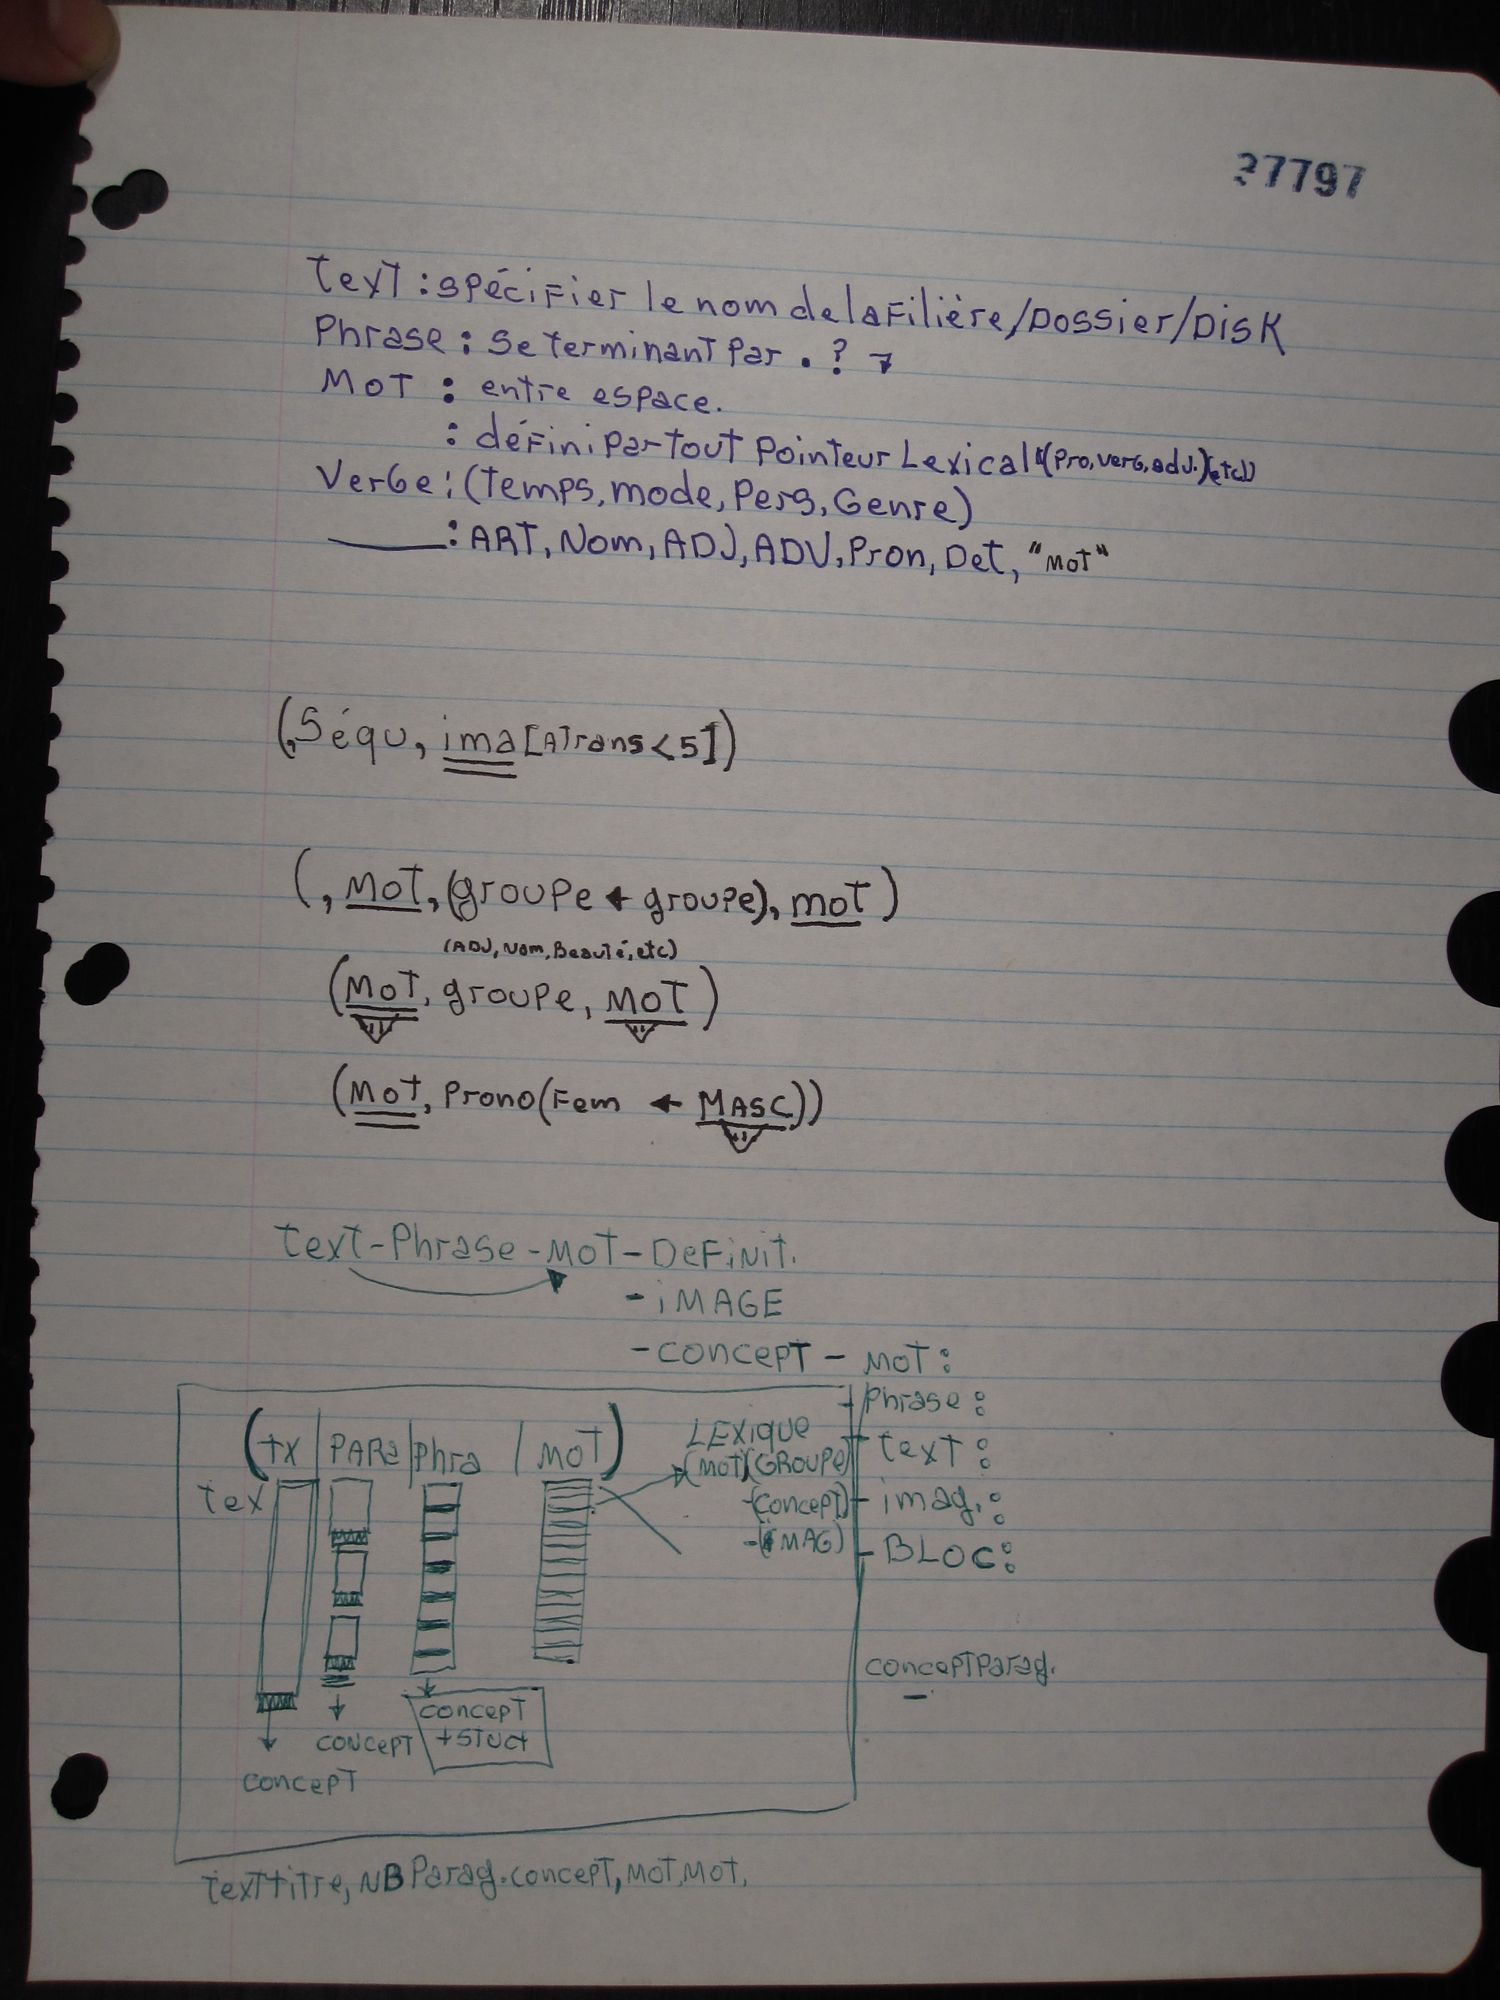 37797
Text : spécifier le nom de la Filière/Dossier/Disk
Phrase : se terminant par . ?
MOT : entre espace.
: défini par tout pointeur Lexical (Pro, verb, adj.)(etc)
Verbe : (Temps, mode, Pers, Genre)
: ART, Nom, ADJ, ADV, Pron, Det, "MOT"
(,Séqu, ima [ATrans < 5])
(, MOT, (groupe + groupe), mot)
(ADJ, Nom, Beauté, etc)
(MOT, groupe, MOT)
(MOT, Prono (Fem ← MASC))
text - Phrase - MOT - DEFINIT.
- IMAGE
- CONCEPT - MOT :
- Phrase :
(TX | PARa | Phra | MOT) LEXIQUE - text :
tex (MOT)(GROUPE)
-(CONCEPT) - imag. :
-(IMAG) - BLOC :
conceptParag.
concept
+ STUCT
CONCEPT
CONCEPT
text titre, NB Parag. concept, MOT, MOT,